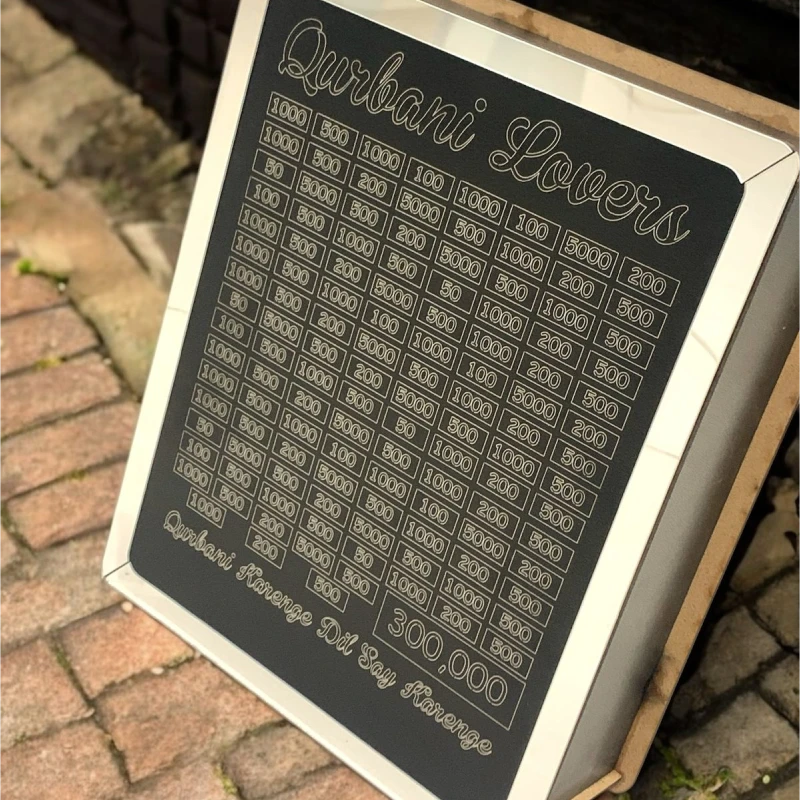 Qurbani Lovers
1000 500 1000 100 1000 100 5000 200
1000 500 200 5000 500 1000 200 500
50 5000 500 200 5000 500 1000 500
100 500 1000 500 50 1000 200 500
1000 500 200 5000 500 1000 200 500
1000 500 1000 100 1000 100 5000 200
1000 500 200 5000 500 1000 200 500
50 5000 500 200 5000 500 1000 500
100 500 1000 500 50 1000 200 500
1000 500 200 5000 500 1000 200 500
1000 500 1000 100 1000 100 5000 500
1000 500 200 5000 500 1000 200 500
50 5000 500 200 5000 500 1000 500
100 500 1000 500 50 1000 200 500
1000 500 200 5000 500
1000 200 500
300,000
Qurbani Karenge Dil Say Karenge